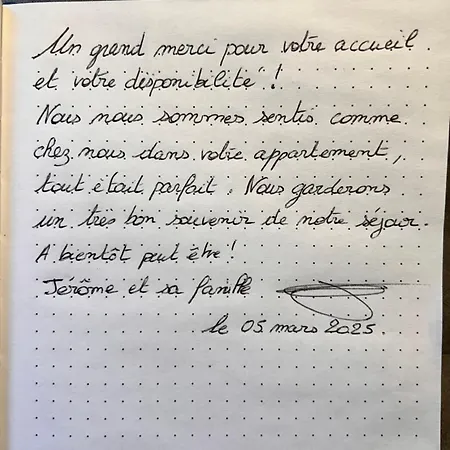 Un grand merci pour votre accueil
et votre disponibilité !
Nous nous sommes sentis comme
chez nous dans votre appartement,
tout était parfait. Nous garderons
un très bon souvenir de notre séjour.
A bientôt peut être !
Jérôme et sa famille
le 05 mars 2025.